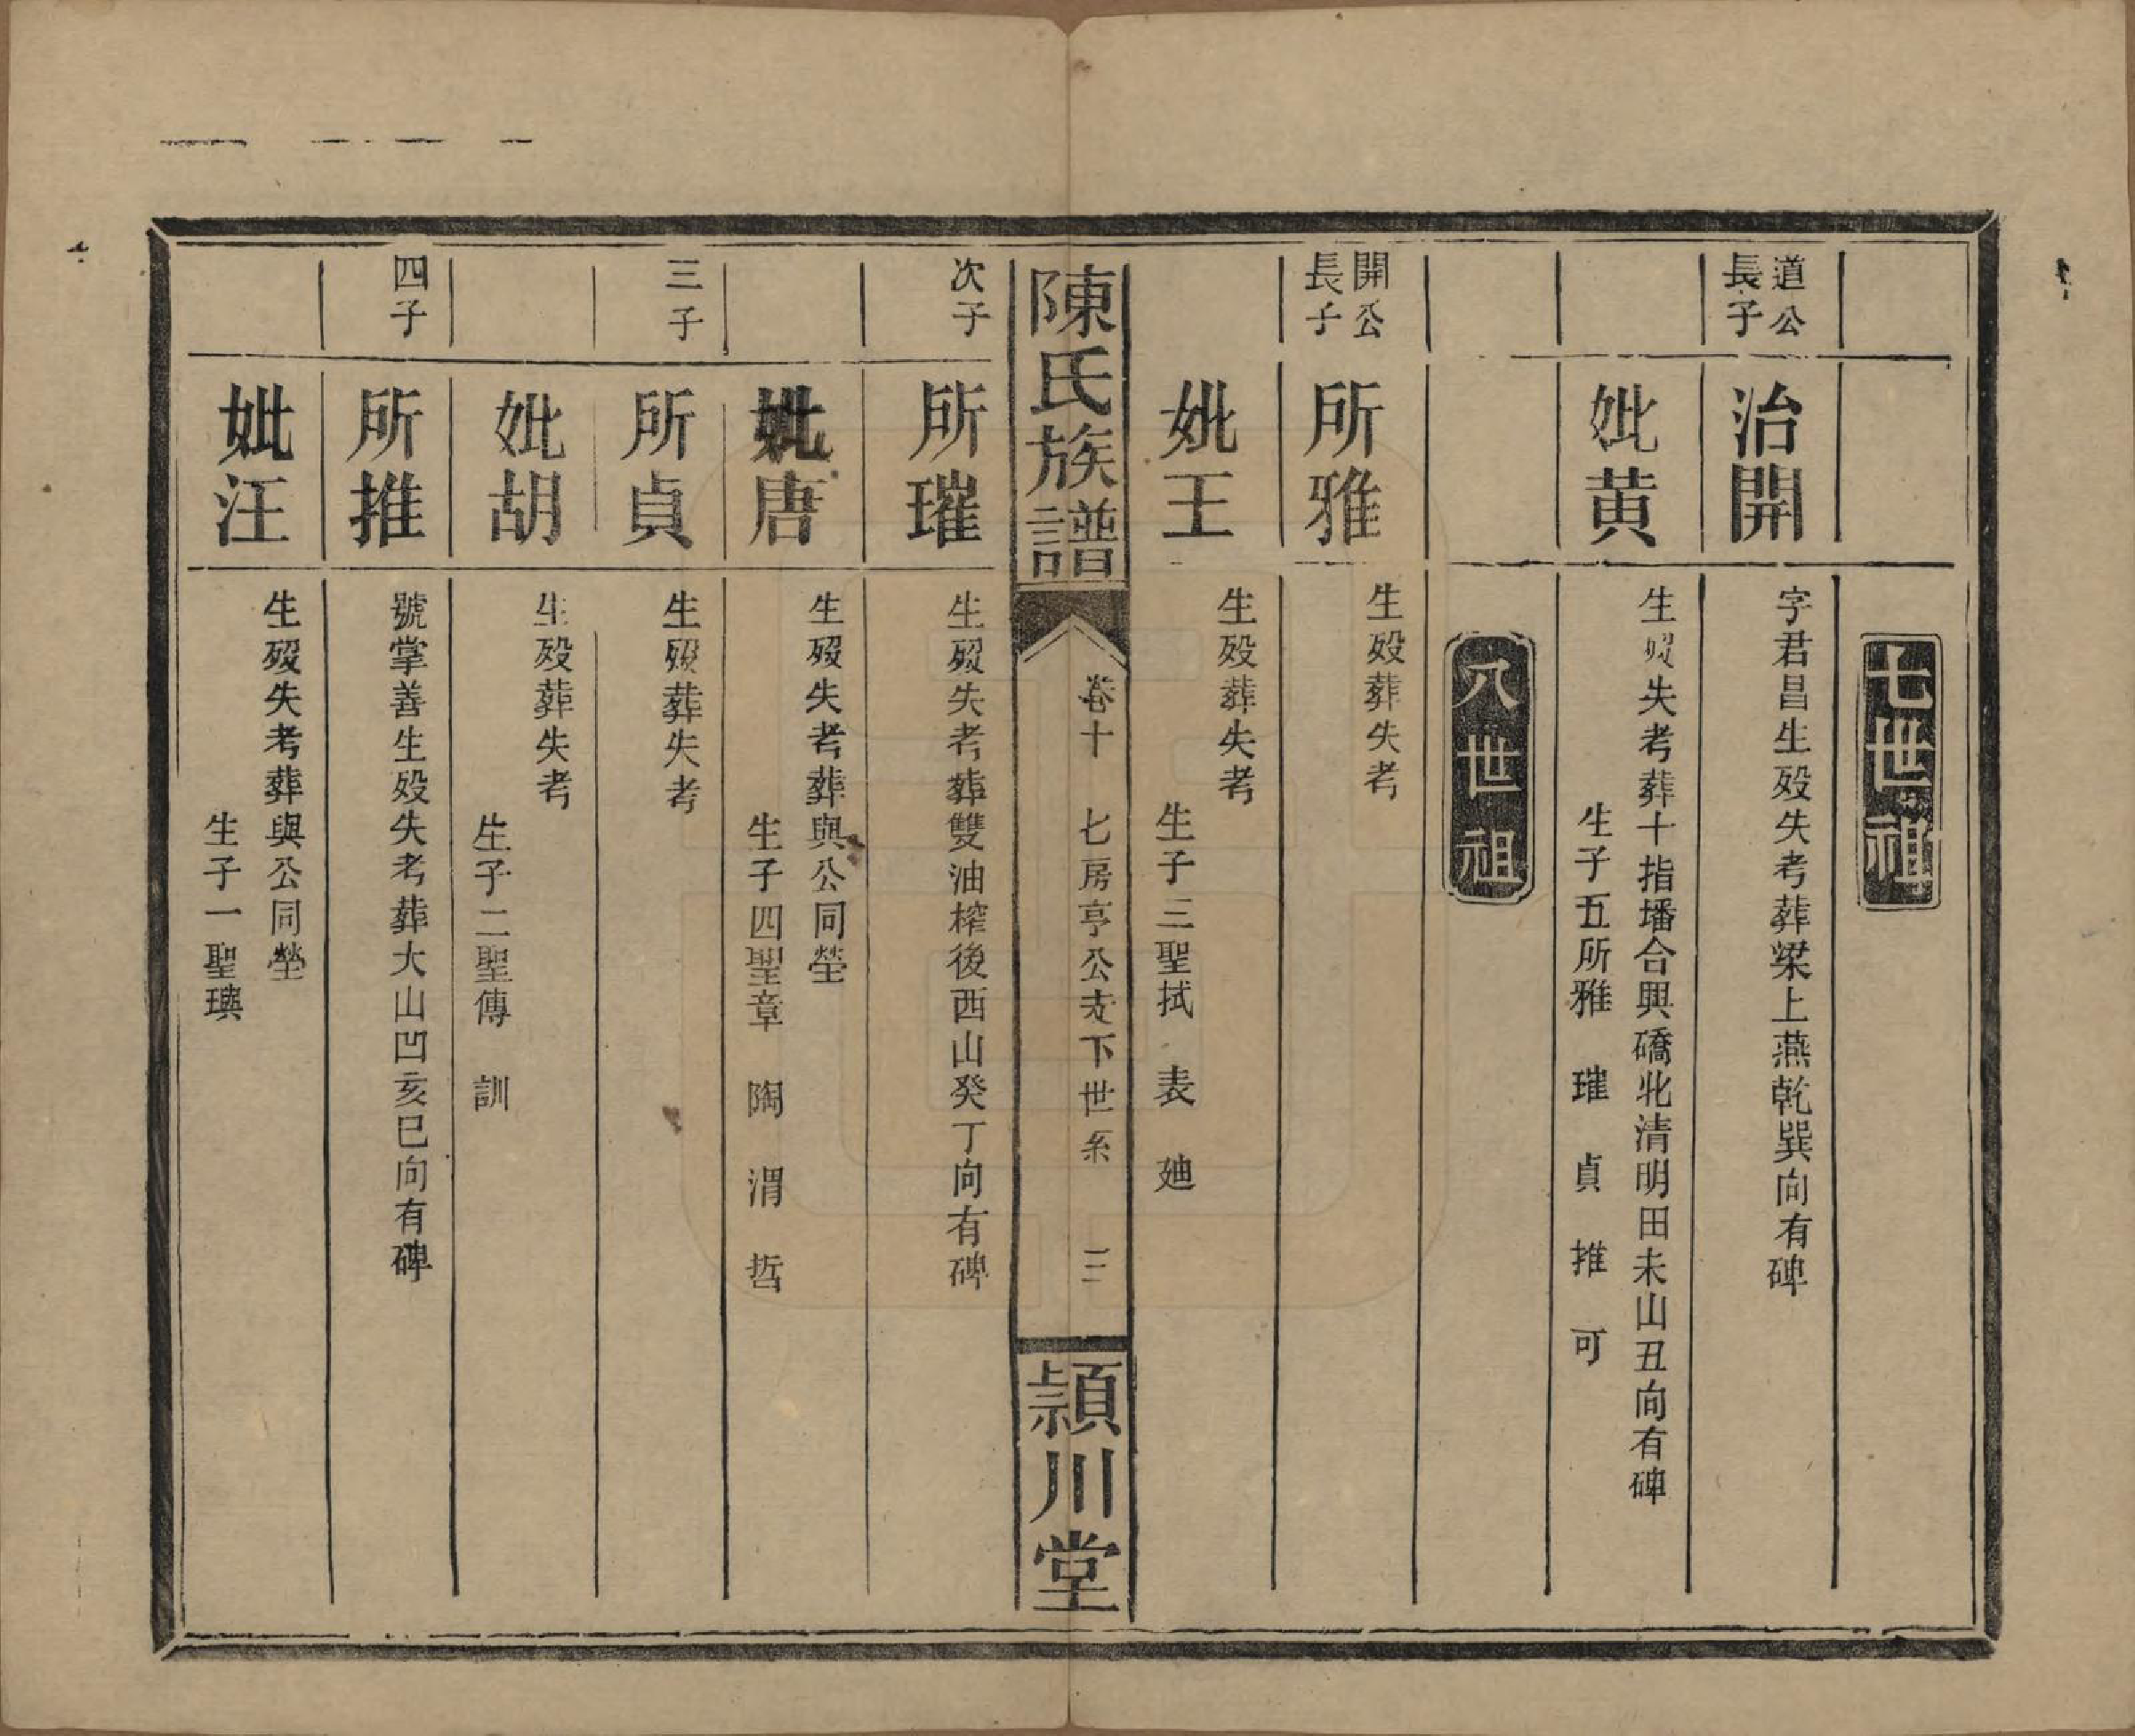 七世祖
道公
長子
治開
字君昌生歿失考葬梁上燕乾巽向有碑
妣黄
生歿失考葬十指墦合興礄北清明田未山丑向有碑
生子五所雅 璀 貞 推 可
八世祖
開公
長子
所雅
生歿葬失考
妣王
生歿葬失考
生子三聖拭 表 廸
陳氏族譜
卷十 七房亨公支下世系 三
頴川堂
次子
所璀
生歿失考葬雙油榨後西山癸丁向有碑
妣唐
生歿失考葬與公同塋
生子四聖章 陶 渭 哲
三子
所貞
生歿葬失考
妣胡
生歿葬失考
生子二聖傳 訓
四子
所推
號掌善生歿失考葬大山凹亥巳向有碑
妣汪
生歿失考葬與公同塋
生子一聖璵